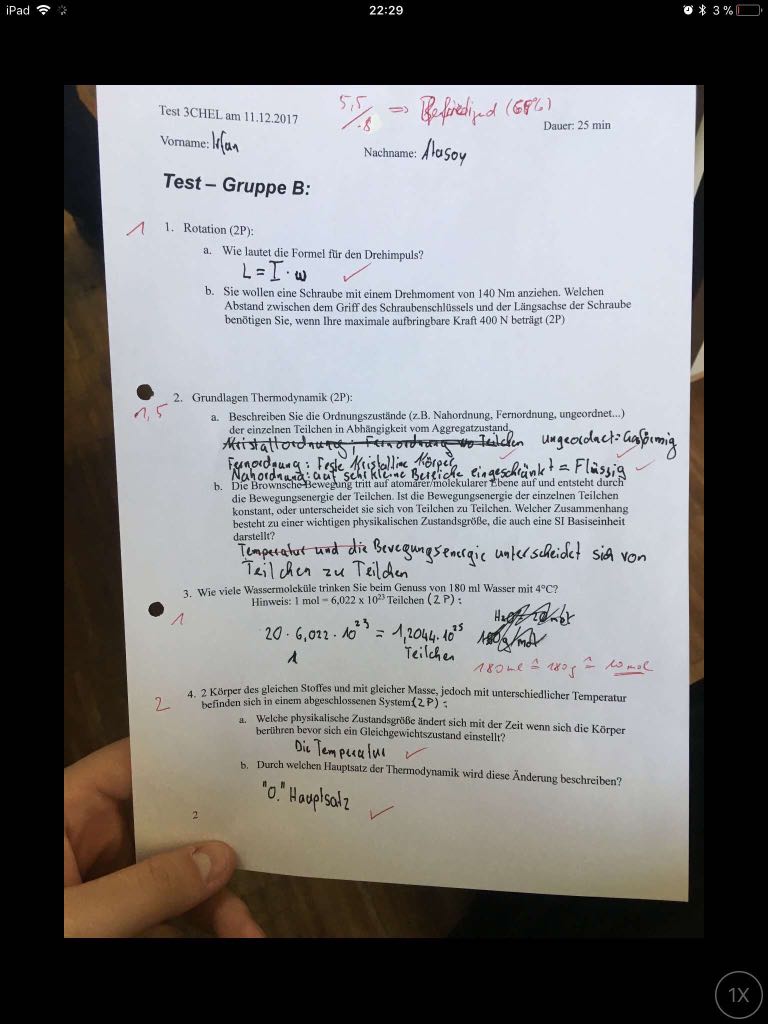 iPad
22:29
3 %
5,5/8 => Befriedigend (69%)
Test 3CHEL am 11.12.2017
Dauer: 25 min
Vorname: Irfan
Nachname: Alasoy
Test – Gruppe B:
1
1. Rotation (2P):
a. Wie lautet die Formel für den Drehimpuls?
L = I · ω
b. Sie wollen eine Schraube mit einem Drehmoment von 140 Nm anziehen. Welchen
Abstand zwischen dem Griff des Schraubenschlüssels und der Längsachse der Schraube
benötigen Sie, wenn Ihre maximale aufbringbare Kraft 400 N beträgt (2P)
1,5
2. Grundlagen Thermodynamik (2P):
a. Beschreiben Sie die Ordnungszustände (z.B. Nahordnung, Fernordnung, ungeordnet...)
der einzelnen Teilchen in Abhängigkeit vom Aggregatzustand.
Kristallordnung; Fernordnung wo Teilchen ungeordnet = Gasförmig
Fernordnung: Feste Kristalline Körper
Nahordnung: auf sehr kleine Bereiche eingeschränkt = Flüssig
b. Die Brownsche Bewegung tritt auf atomarer/molekularer Ebene auf und entsteht durch
die Bewegungsenergie der Teilchen. Ist die Bewegungsenergie der einzelnen Teilchen
konstant, oder unterscheidet sie sich von Teilchen zu Teilchen. Welcher Zusammenhang
besteht zu einer wichtigen physikalischen Zustandsgröße, die auch eine SI Basiseinheit
darstellt?
Temperatur und die Bewegungsenergie unterscheidet sich von
Teilchen zu Teilchen
3. Wie viele Wassermoleküle trinken Sie beim Genuss von 180 ml Wasser mit 4°C?
Hinweis: 1 mol = 6,022 x 10²³ Teilchen (2P):
1
20 · 6,022 · 10²³ = 1,2044 · 10²⁵
1
Teilchen
180ml ≙ 180g ≙ 10 mol
2
4. 2 Körper des gleichen Stoffes und mit gleicher Masse, jedoch mit unterschiedlicher Temperatur
befinden sich in einem abgeschlossenen System (2P):
a. Welche physikalische Zustandsgröße ändert sich mit der Zeit wenn sich die Körper
berühren bevor sich ein Gleichgewichtszustand einstellt?
Die Temperatur
b. Durch welchen Hauptsatz der Thermodynamik wird diese Änderung beschreiben?
"0." Hauptsatz
2
1X